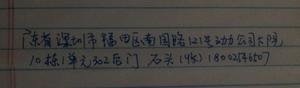 广东省深圳市福田区南园路121号动力公司大院
10栋1单元302后门 石头(收)